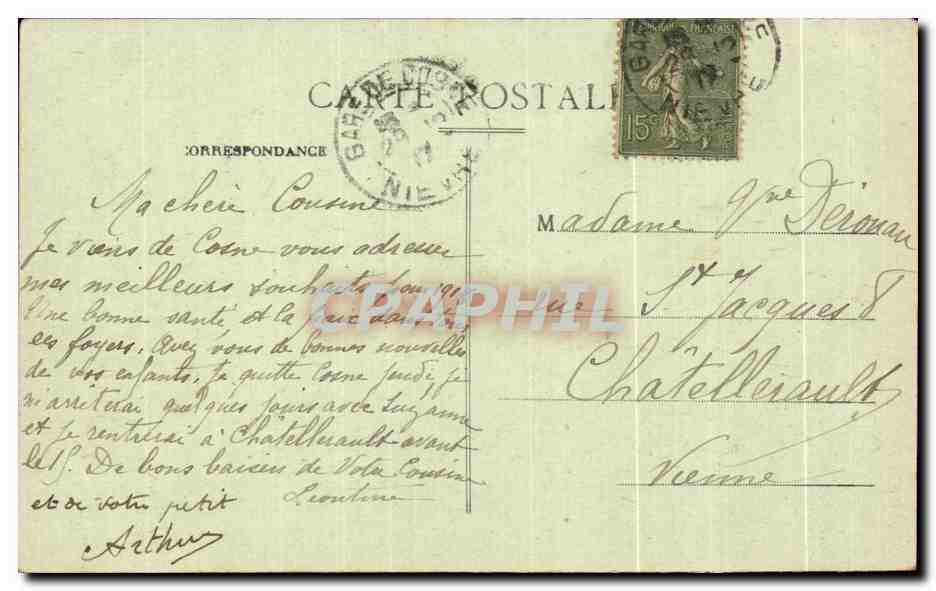 CARTE POSTALE
CORRESPONDANCE
GARE DE COSNE
NIEVRE
15c
Ma chère Cousine
Je viens de Cosne vous adresser
mes meilleurs souhaits pour 191
Une bonne santé et la paix dans
les foyers. Avez vous de bonnes nouvelles
de vos enfants. Je quitte Cosne jeudi je
m'arrêterai quelques jours avec Suzanne
et je rentrerai à Châtellerault avant
le 15. De bons baisers de Votre Cousine
Léontine
et de votre petit
Arthur
Madame Vve Derouau
rue St Jacques 8
Châtellerault
Vienne
CPAPHIL